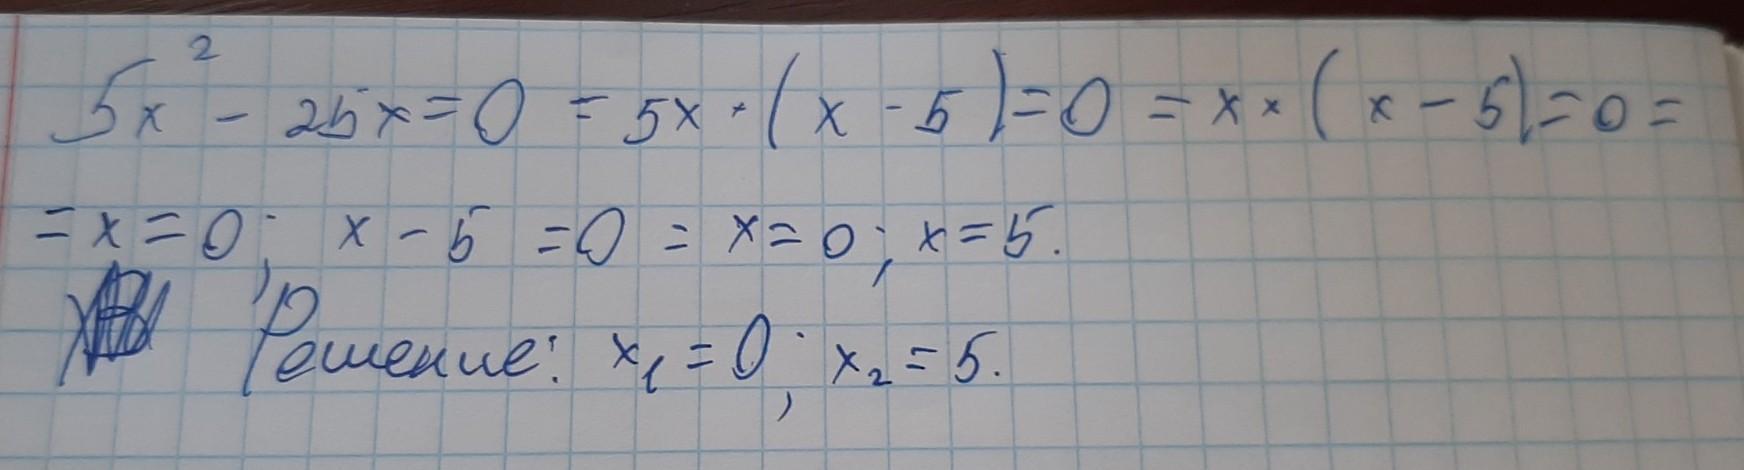 5x² - 25x = 0 = 5x · (x - 5) = 0 = x × (x - 5) = 0 =
= x = 0; x - 5 = 0 = x = 0; x = 5.
Решение: x₁ = 0; x₂ = 5.